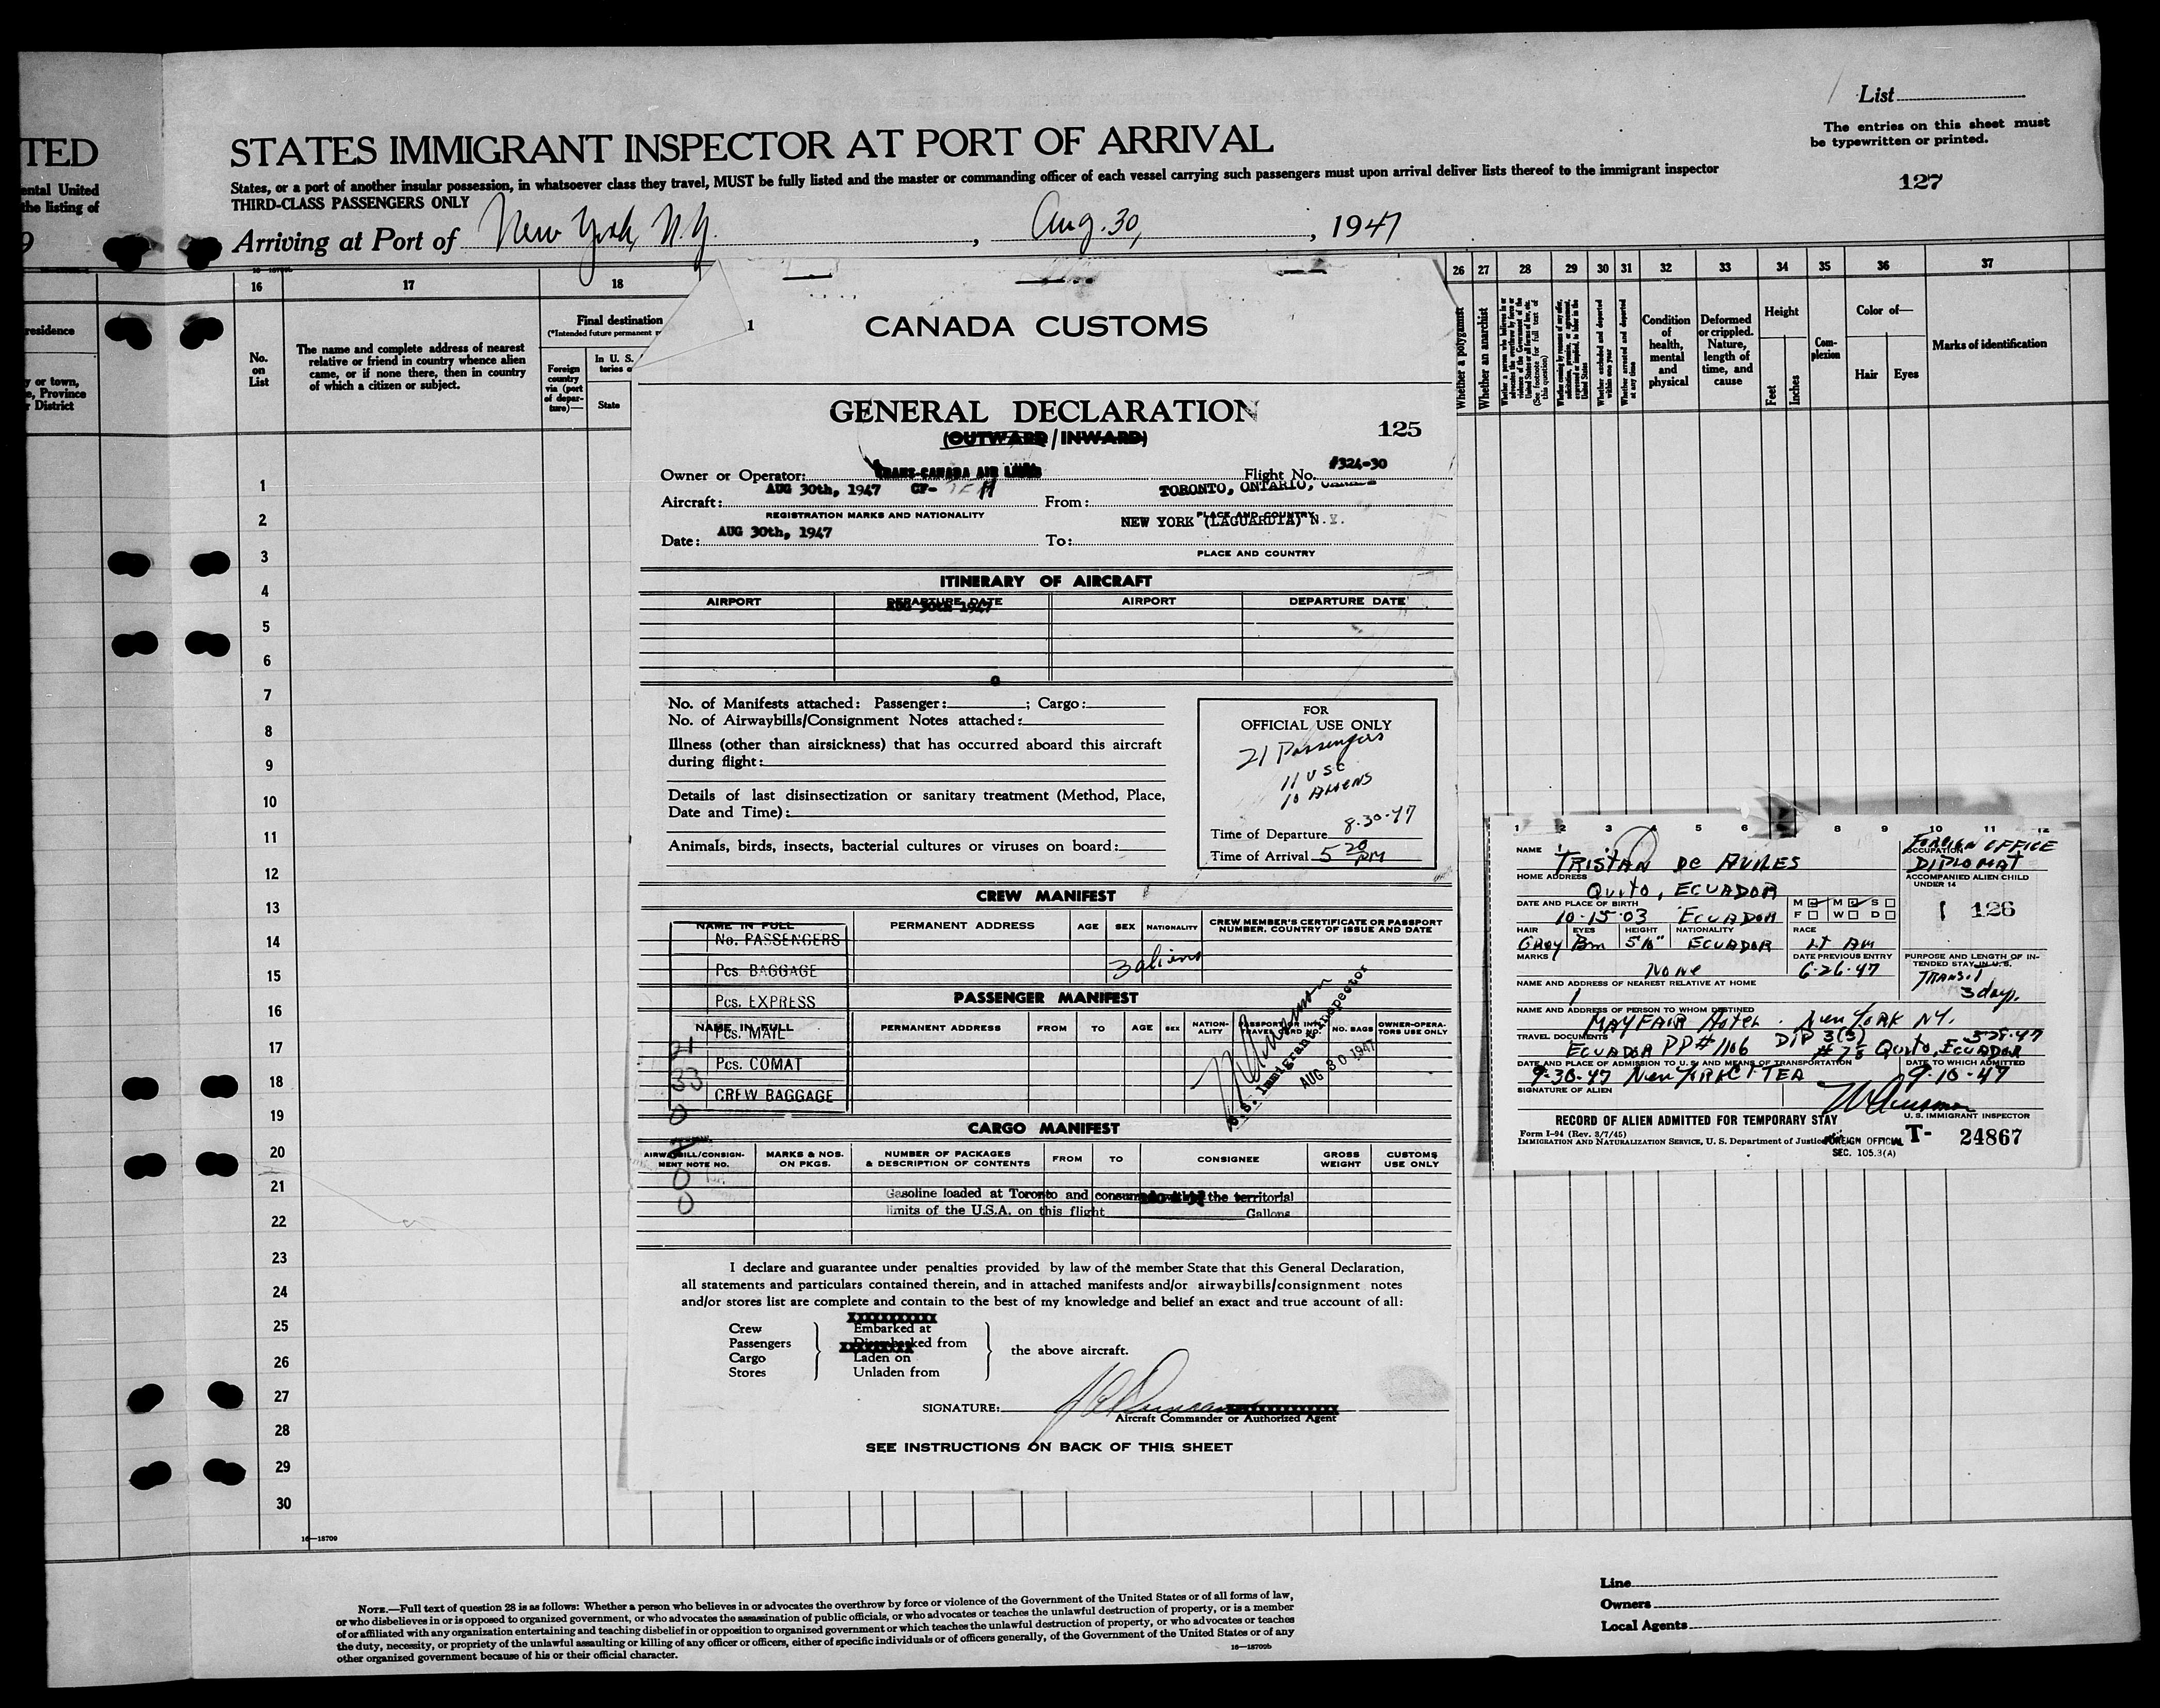 List
The entries on this sheet must
be typewritten or printed.
127
TED
ental United
the listing of
9
STATES IMMIGRANT INSPECTOR AT PORT OF ARRIVAL
States, or a port of another insular possession, in whatsoever class they travel, MUST be fully listed and the master or commanding officer of each vessel carrying such passengers must upon arrival deliver lists thereof to the immigrant inspector
THIRD-CLASS PASSENGERS ONLY
Arriving at Port of New York, N.Y. , Aug. 30, , 1947
16 17 18 26 27 28 29 30 31 32 33 34 35 36 37
residence
y or town,
e, Province
r District
No.
on
List
The name and complete address of nearest
relative or friend in country whence alien
came, or if none there, then in country
of which a citizen or subject.
Final destination
(*Intended future permanent r
Foreign
country
via (port
of depar-
ture)—
In U. S.
tories o
State
Whether a polygamist
Whether an anarchist
(See footnote for full text of
this question)
Whether excluded and deported
within one year
Whether arrested and deported
at any time
Condition
of
health,
mental
and
physical
Deformed
or crippled.
Nature,
length of
time, and
cause
Height
Feet
Inches
Com-
plexion
Color of—
Hair Eyes
Marks of identification
1
2
3
4
5
6
7
8
9
10
11
12
13
14
15
16
17
18
19
20
21
22
23
24
25
26
27
28
29
30
16—18709
1
CANADA CUSTOMS
GENERAL DECLARATION
(OUTWARD/INWARD)
125
Owner or Operator: TRANS-CANADA AIR LINES Flight No. #324-30
Aircraft: AUG 30th, 1947 CF- From: TORONTO, ONTARIO, CANADA
REGISTRATION MARKS AND NATIONALITY PLACE AND COUNTRY
Date: AUG 30th, 1947 To: NEW YORK (LAGUARDIA) N.Y.
PLACE AND COUNTRY
ITINERARY OF AIRCRAFT
AIRPORT DEPARTURE DATE AIRPORT DEPARTURE DATE
AUG 30th 1947
0
No. of Manifests attached: Passenger: ; Cargo:
No. of Airwaybills/Consignment Notes attached:
Illness (other than airsickness) that has occurred aboard this aircraft
during flight:
Details of last disinsectization or sanitary treatment (Method, Place,
Date and Time):
Animals, birds, insects, bacterial cultures or viruses on board:
FOR
OFFICIAL USE ONLY
21 Passengers
11 USC
10 ALIENS
Time of Departure 8-30-47
Time of Arrival 5 20 PM
CREW MANIFEST
NAME IN FULL PERMANENT ADDRESS AGE SEX NATIONALITY CREW MEMBER'S CERTIFICATE OR PASSPORT
NUMBER. COUNTRY OF ISSUE AND DATE
3 aliens
No. PASSENGERS
Pcs. BAGGAGE
Pcs. EXPRESS
Pcs. MAIL
Pcs. COMAT
CREW BAGGAGE
21
33
0
0
0
PASSENGER MANIFEST
NAME IN FULL PERMANENT ADDRESS FROM TO AGE SEX NATION-
ALITY PASSPORT OR INT.
TRAVEL CARD NO. NO. BAGS OWNER-OPERA-
TORS USE ONLY
U.S. Immigrant Inspector
AUG 30 1947
CARGO MANIFEST
AIRWAYBILL/CONSIGN-
MENT NOTE NO. MARKS & NOS.
ON PKGS. NUMBER OF PACKAGES
& DESCRIPTION OF CONTENTS FROM TO CONSIGNEE GROSS
WEIGHT CUSTOMS
USE ONLY
Gasoline loaded at Toronto and consumed within the territorial
limits of the U.S.A. on this flight Gallons
I declare and guarantee under penalties provided by law of the member State that this General Declaration,
all statements and particulars contained therein, and in attached manifests and/or airwaybills/consignment notes
and/or stores list are complete and contain to the best of my knowledge and belief an exact and true account of all:
XXXXXXXXXX
Crew Embarked at
Passengers Disembarked from
Cargo Laden on
Stores Unladen from
the above aircraft.
SIGNATURE:
Aircraft Commander or Authorized Agent
SEE INSTRUCTIONS ON BACK OF THIS SHEET
1 2 3 4 5 6 8 9 10 11 12
NAME TRISTAN DE AVILES
OCCUPATION FOREIGN OFFICE
DIPLOMAT
HOME ADDRESS Quito, ECUADOR
ACCOMPANIED ALIEN CHILD
UNDER 14
DATE AND PLACE OF BIRTH 10-15-03 ECUADOR
M M S
F W D
126
HAIR EYES HEIGHT NATIONALITY RACE
Gray Brn 5'10" ECUADOR Lt Am
MARKS None
DATE PREVIOUS ENTRY 6-26-47
PURPOSE AND LENGTH OF IN-
TENDED STAY IN U.S.
TRANSIT
3 days.
NAME AND ADDRESS OF NEAREST RELATIVE AT HOME
NAME AND ADDRESS OF PERSON TO WHOM DESTINED
MAYFAIR Hotel. New YORK NY.
TRAVEL DOCUMENTS ECUADOR PP# 1106 DIP 3(3) 5-28-47
Quito, ECUADOR
DATE AND PLACE OF ADMISSION TO U. S. AND MEANS OF TRANSPORTATION DATE TO WHICH ADMITTED
New YORK 9-10-47
SIGNATURE OF ALIEN
U. S. IMMIGRANT INSPECTOR
RECORD OF ALIEN ADMITTED FOR TEMPORARY STAY
Form I-94 (Rev. 3/7/45)
IMMIGRATION AND NATURALIZATION SERVICE, U. S. Department of Justice
FOREIGN OFFICIAL
SEC. 105.3(A)
T- 24867
Line
Owners
Local Agents
NOTE.—Full text of question 28 is as follows: Whether a person who believes in or advocates the overthrow by force or violence of the Government of the United States or of all forms of law,
or who disbelieves in or is opposed to organized government, or who advocates the assassination of public officials, or who advocates or teaches the unlawful destruction of property, or is a member
of or affiliated with any organization entertaining and teaching disbelief in or opposition to organized government or which teaches the unlawful destruction of property, or who advocates or teaches
the duty, necessity, or propriety of the unlawful assaulting or killing of any officer or officers, either of specific individuals or of officers generally, of the Government of the United States or of any
other organized government because of his or their official character.
16—18709b